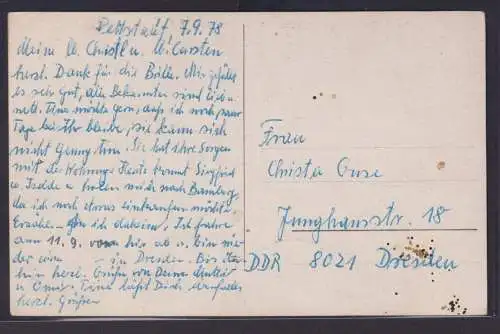 Pettstadt, 7.9.78
Meine lb. Christl u. lb. Carsten
herzl. Dank für die Bilder. Mir gefällt
es sehr gut, alle Bekannten sind lieb u.
nett. Tine möchte gern, daß ich noch paar
Tage bei ihr bleibe, sie kann sich
nicht genug tun. Sie hat ihre Sorgen
mit der Wohnung. Heute kommt Siegfried
u. holen mich nach Bamberg,
da ich noch etwas einkaufen möchte.
Erzähle daheim. Ich fahre
am 11.9. von hier ab u. bin wie-
der in Dresden. Bis da-
hin herzl. Grüße von Deiner Mutter
u. Oma. Tine läßt Dich ebenfalls
herzl. Grüßen
Frau
Christa Guse
Junghansstr. 18
DDR 8021 Dresden